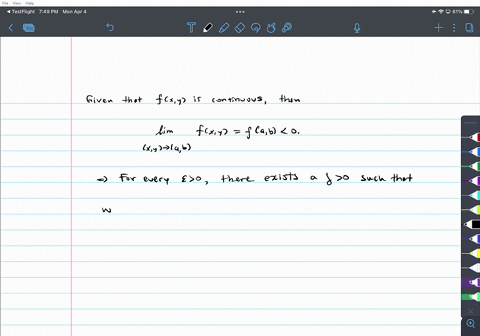 File View Help
◀ TestFlight 7:49 PM Mon Apr 4
61%
Given that f(x,y) is continuous, then
lim f(x,y) = f(a,b) < 0.
(x,y)→(a,b)
⇒ For every ε>0, there exists a δ>0 such that
w